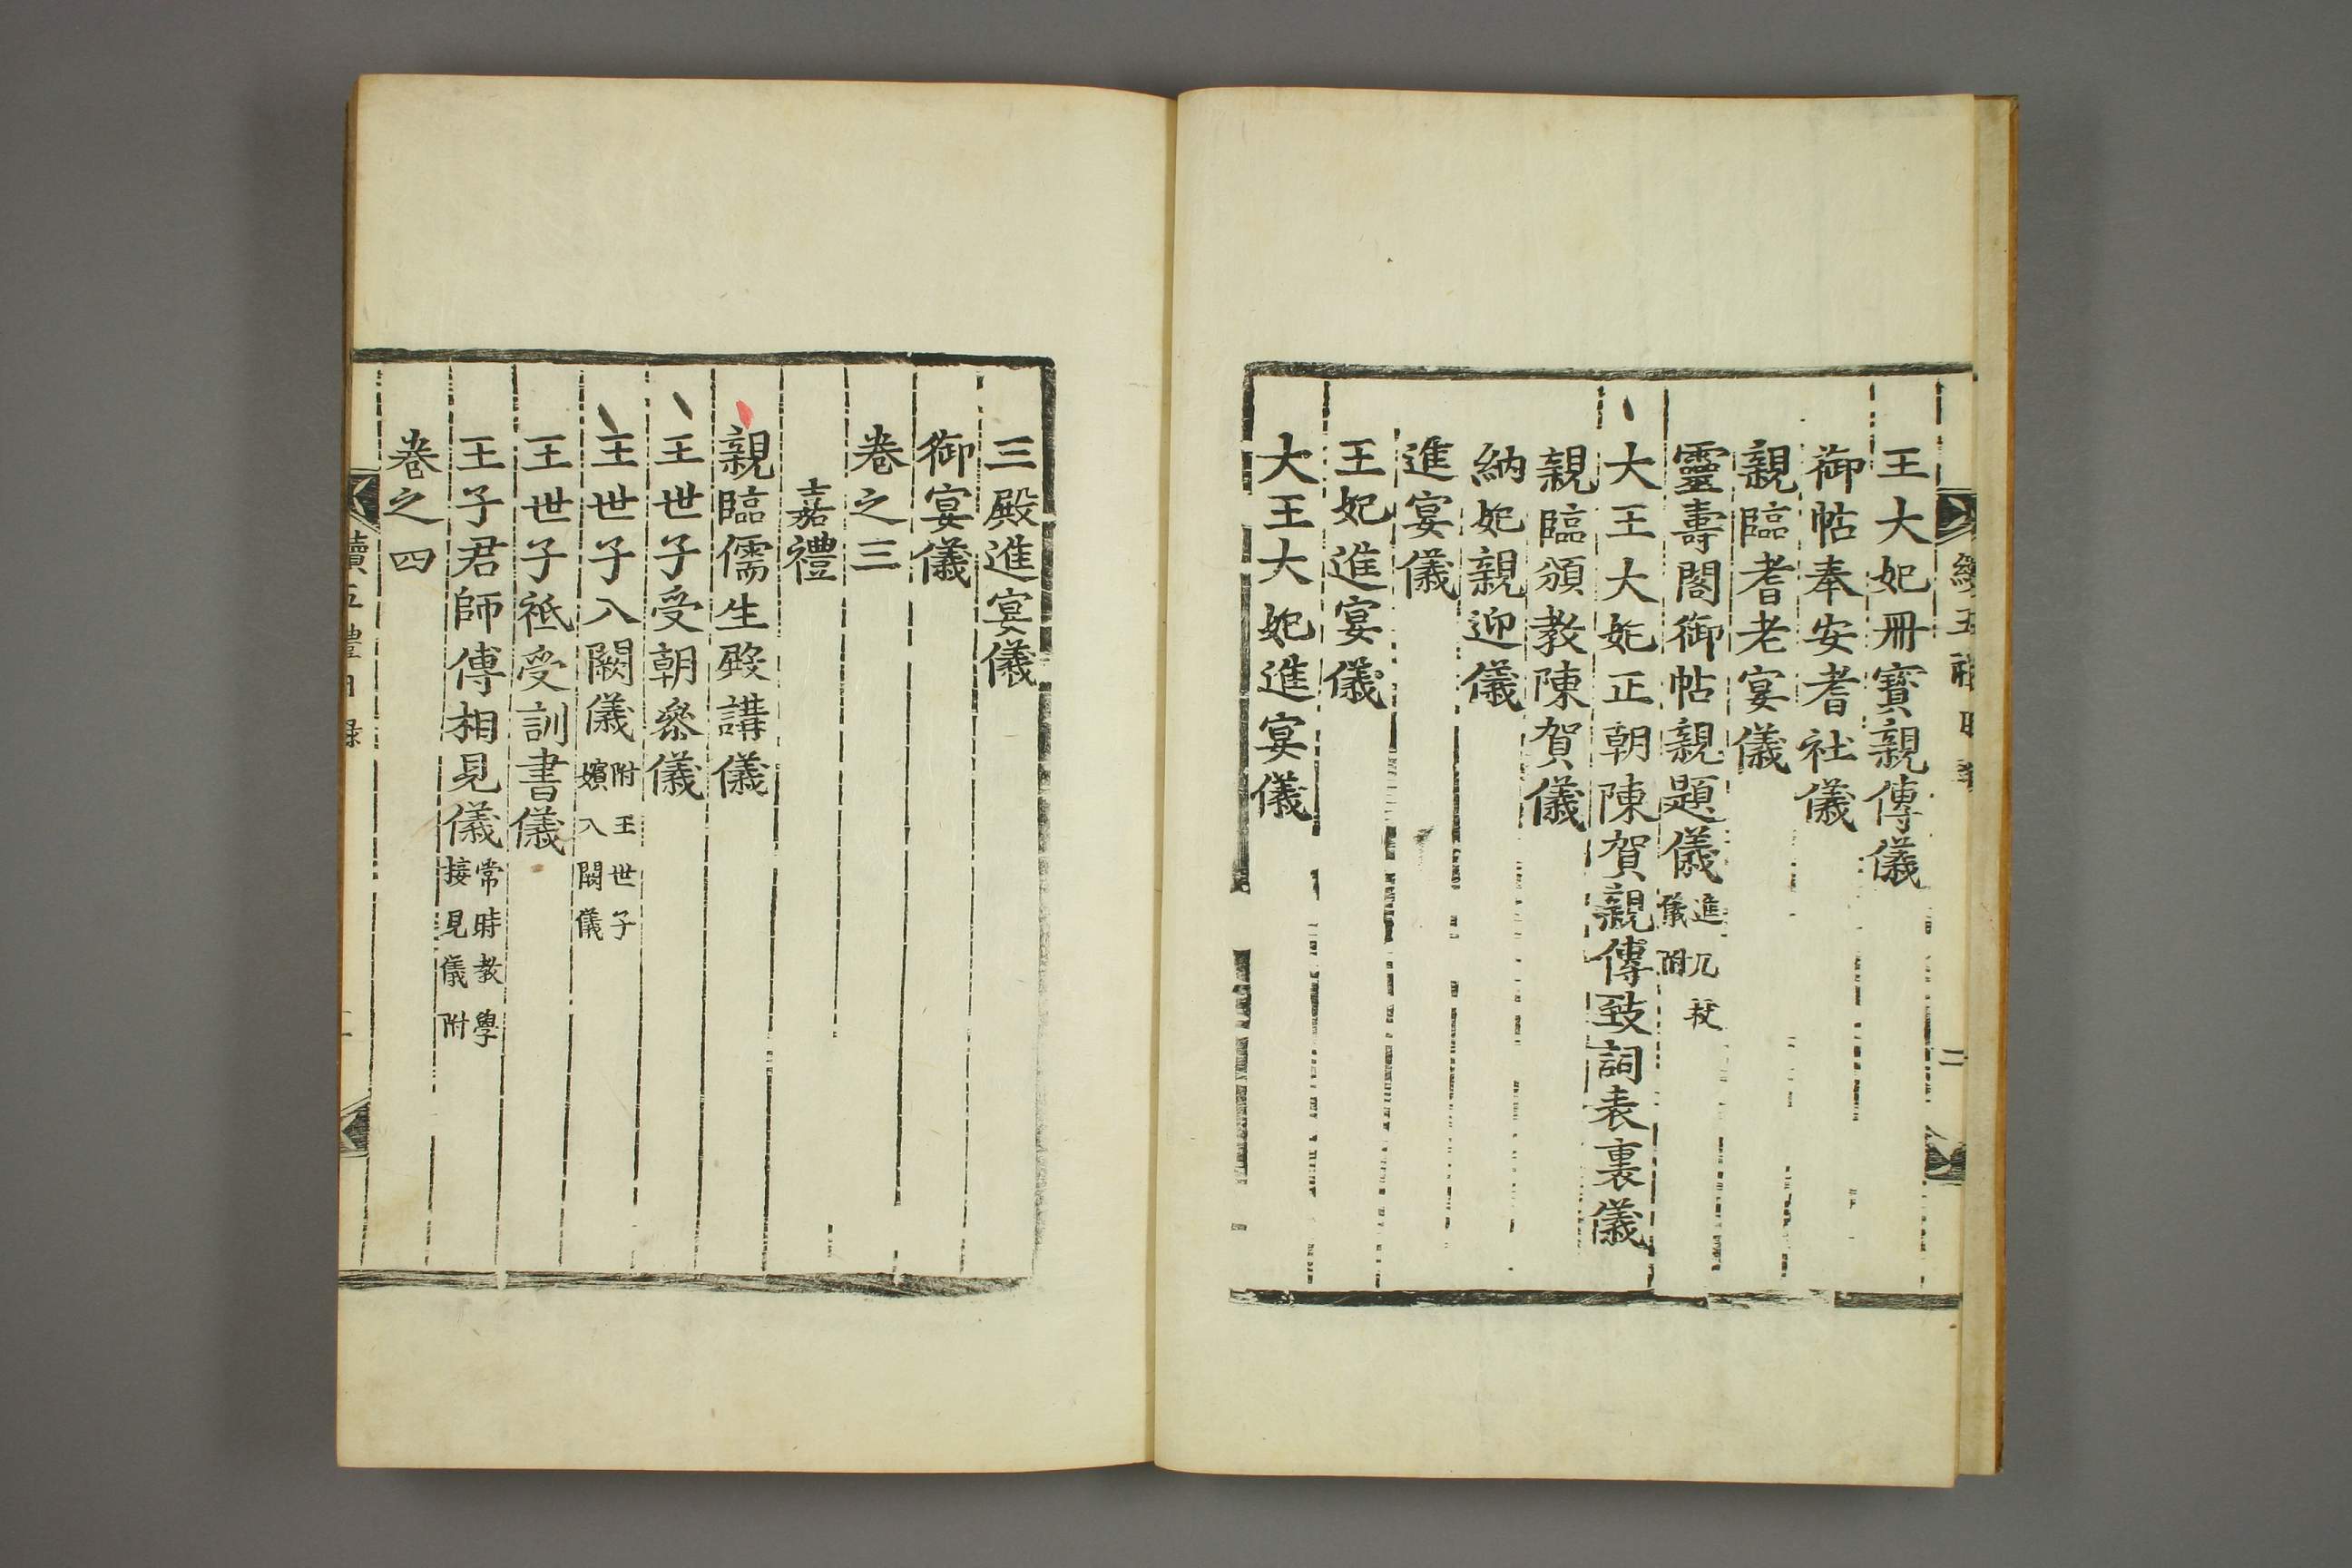 王大妃冊寶親傳儀
御帖奉安耆社儀
親臨耆老宴儀
靈壽閣御帖親題儀進几杖儀附
大王大妃正朝陳賀親傳致詞表裏儀
親臨頒教陳賀儀
納妃親迎儀
進宴儀
王妃進宴儀
大王大妃進宴儀
三殿進宴儀
御宴儀
卷之三
嘉禮
親臨儒生殿講儀
王世子受朝參儀
王世子入闕儀附王世子嬪入闕儀
王世子祗受訓書儀
王子君師傅相見儀常時教學接見儀附
卷之四